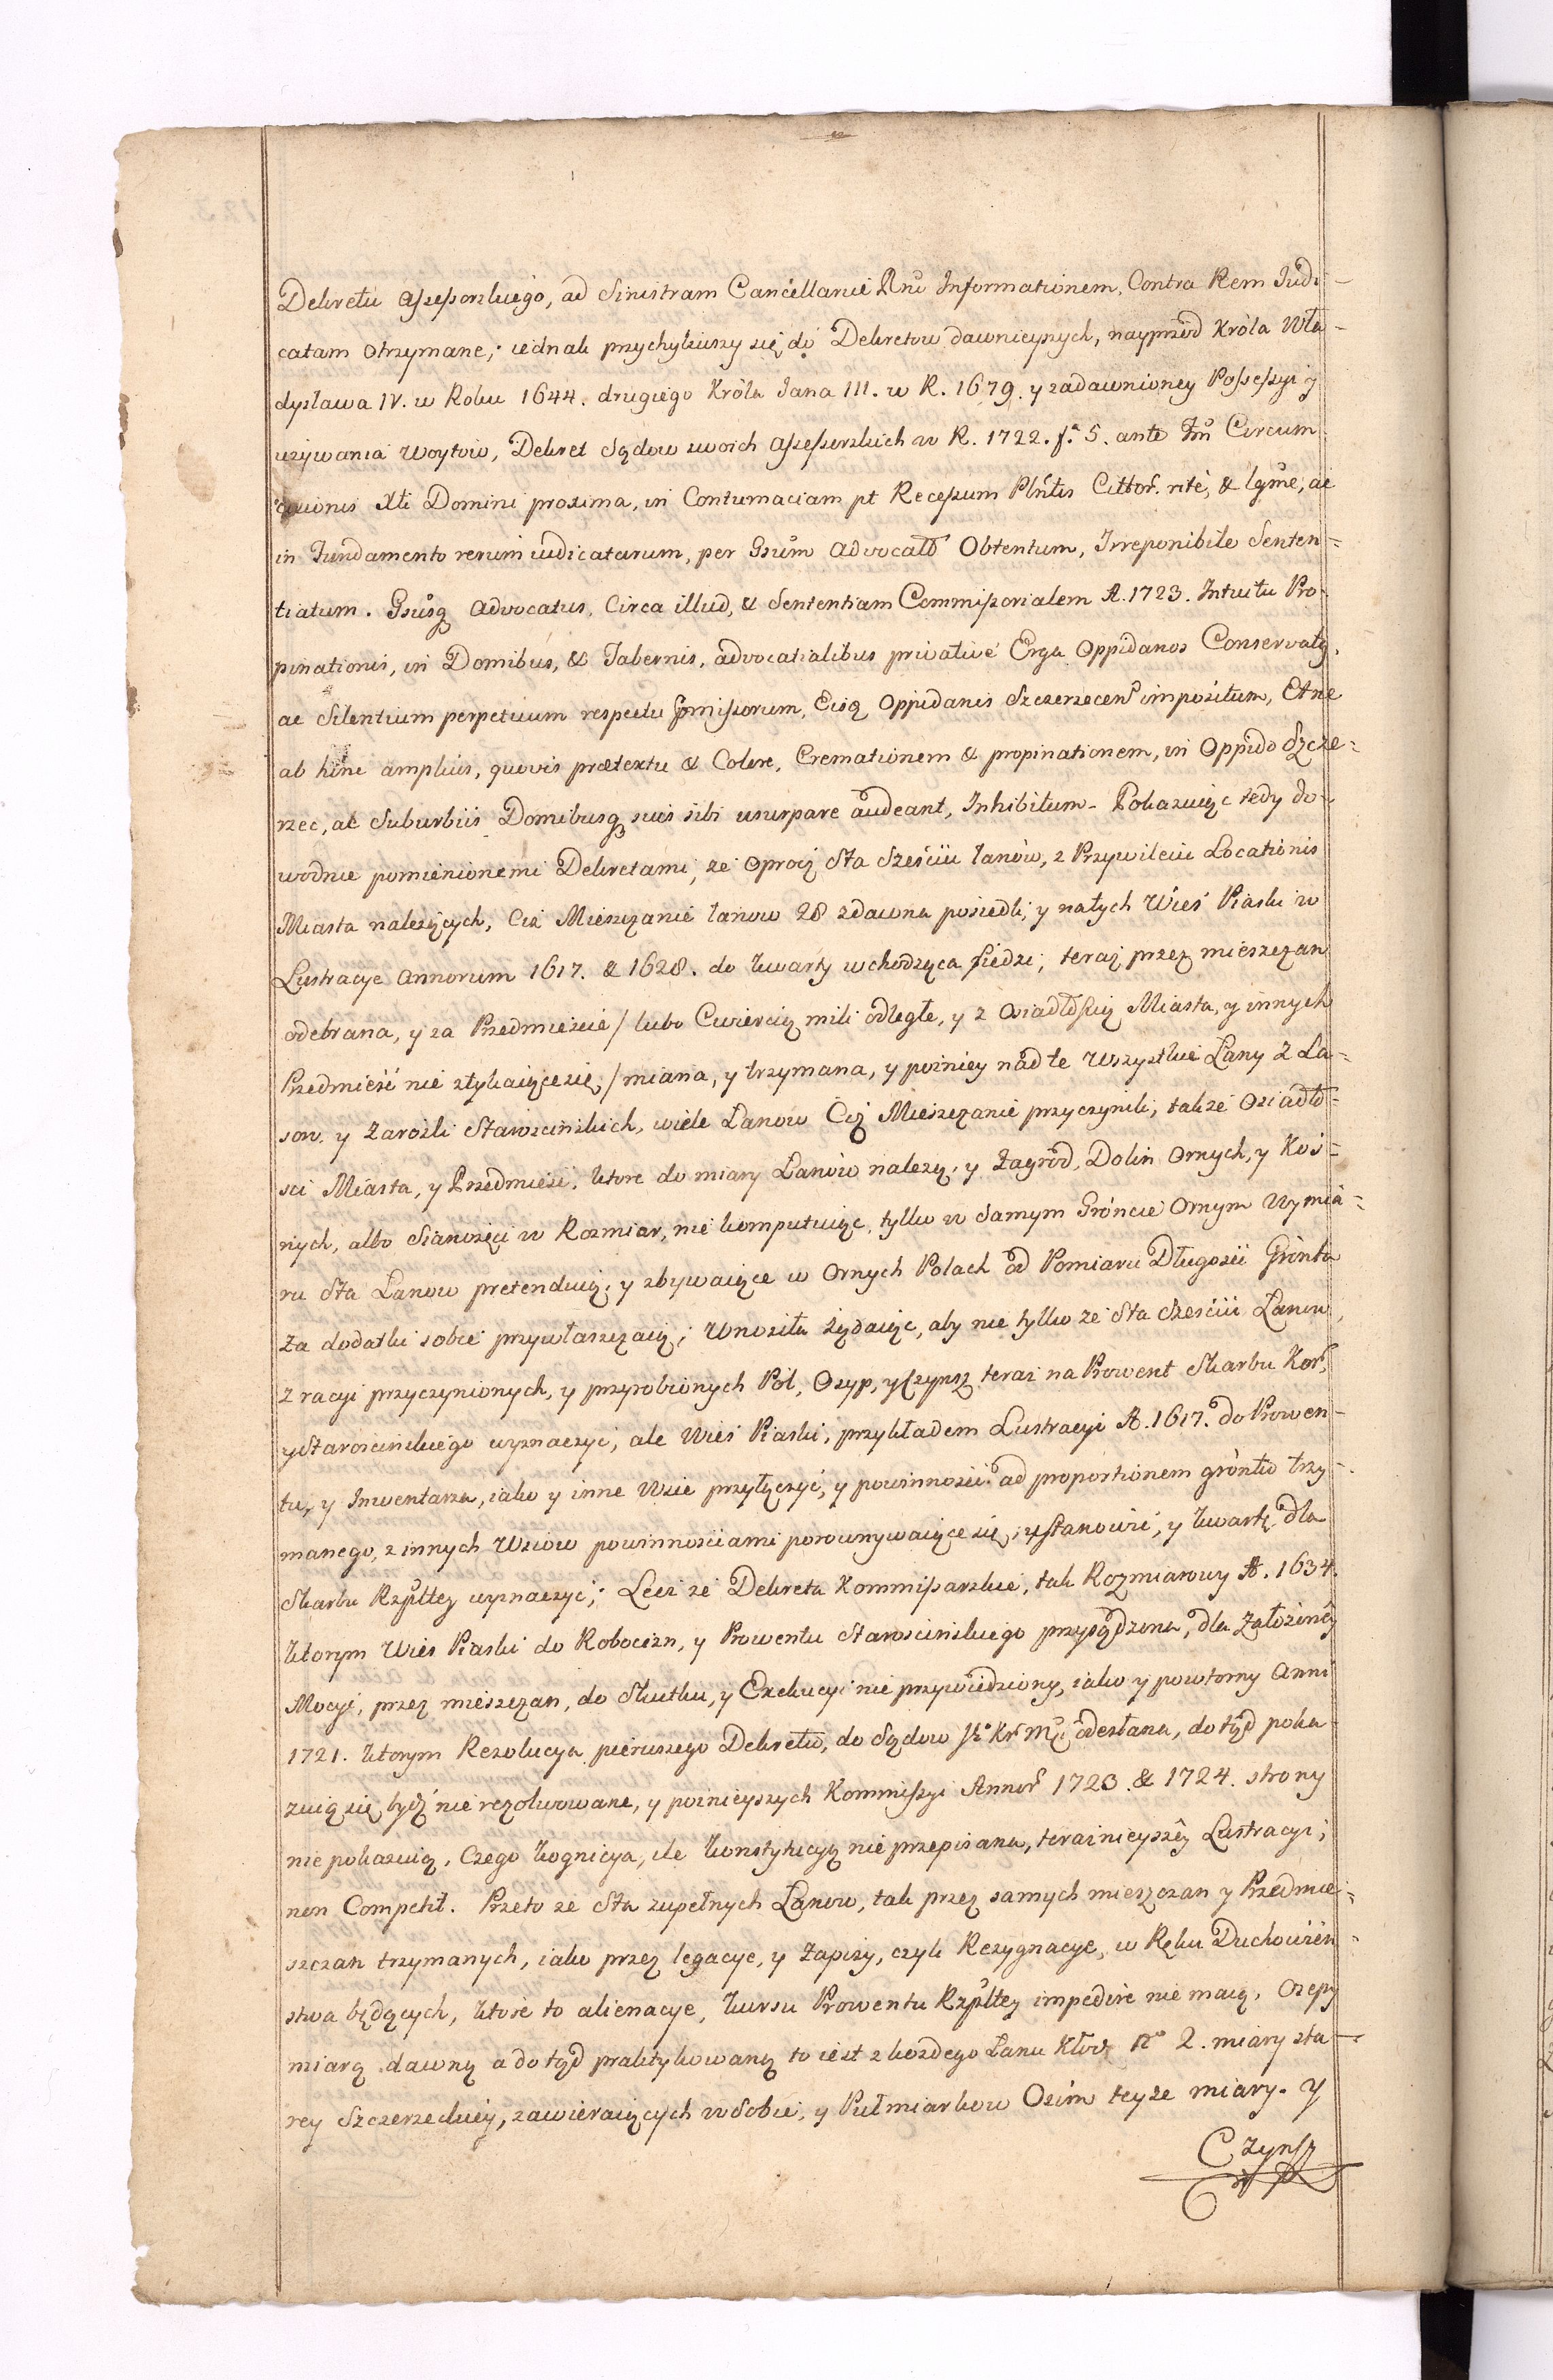 Dekretu assessorskiego, ad Sinistram Cancellariæ Rni Informationem, Contra Rem Judi-
catam otrzymane; iednak przychyliwszy się do Dekretow dawnieyszych, nayprzód Króla Wła-
dysława IV. w Roku 1644. drugiego Króla Jana III. w R. 1679. y zadawnioney Possessyi y
używania Woytów, Dekret Sądow swoich assessorskich w R. 1722. fa 5. ante Ftũ Circum-
cisionis Xti Domini proxima, in Contumaciam pt Recessum Plntis Cittor. ritè, & lgme, ac
in Fundamento rerum iudicatarum, per Gsum Advocatũ Obtentum, Irreponibile Senten=
tiatum. Gsusq Advocatus, Circa illud, & Sententiam Commissorialem A. 1723. Intuitu Pro-
pinationis, in Domibus, & Tabernis, advocatialibus privativé Erga Oppidanos Conservatg,
ac Silentium perpetuum respectu pmissorum, Eisq Oppidanis Szczerzecen impositum, Et ne
ab hinc amplius, quovis prætextu & Colore, Cremationem & propinationem, in Oppido Szcze=
rzec, ac Suburbiis Domibusq suis sibi usurpare audeant, Inhibitum - Pokazuiąc tedy do-
wodnie pomienionemi Dekretami, że oprocz Sta Sześciu łanów, z Przywileiu Locationis
Miasta należących, Ciż Mieszczanie łanow 28 zdawna posiedli, y na tych Wieś Piaski w
Lustracye Annorum 1617. & 1628. do kwarty wchodząca siedzi; teraz przez mieszczan
odebrana, y za Przedmieście / lubo Cwiercią mili odległe, y z osiadłością Miasta, y innych
Przedmieść nie stykaiące się, / miana, y trzymana, y pożniey nad te Wszystkie Łany z La=
sow. y Zarośli Starościńskich, wiele Łanow Ciż Mieszczanie przyczynili; także Osiadło=
sci Miasta, y Przedmieść, ktore do miary Łanów należą, y Zagród, Dolin Ornych, y Koś=
nych, albo Sianożęci w Rozmiar, nie komputuiąc, tylko w Samym Gróncie Ornym Wymia=
ru Sta Łanow pretenduią; y zbywaiące w Ornych Polach od Pomiaru Długości Grónta
za dodatki sobie przywłaszczaią; Wnosiła żądaiąc, aby nie tylko ze Sta Sześciu Łanow,
z racyi przyczynionych, y przyrobionych Pól, Osyp, y Czynsz teraz na Prowent Skarbu Kor,
y Starościńskiego wyznaczyć, ale Wieś Piaski, przykładem Lustracyi A. 1617. do Prowen-
tu, y Inwentarza, iako y inne Wsie przyłączyć, y powinności ad proportionem gróntu trzy-
manego, z innych Wsiów powinnościami porownywaiące się, ustanowić, y kwartę dla
Skarbu Rzpltey wyznaczyć; Lecz że Dekreta Kommissarskie, tak Rozmiarowy A. 1634.
ktorym Wieś Piaski do Robocizn, y Prowentu Starościńskiego przysądzona, dla Założoney
Mocyi, przez mieszczan, do Skutku, y Exekucyi nie przywiedziony, iako y powtorny Anni
1721. ktorym Rezolucya pierwszego Dekretu, do Sądow Jo Kr Mci odesłana, dotąd poka-
zuią się bydź nie rezolwowane, y poznieyszych Kommissyi Annor 1723. & 1724. strony
nie pokazuią, Czego kognicya, ile konstytucyą nie przepisana, teraźnieyszéy Lustracyi;
non Competit. Przeto ze Sta zupełnych Łanow, tak przez samych mieszczan y Przedmie=
szczan trzymanych, iako przez legacye, y Zapisy, czyli Rezygnacye, w Ręku Duchowień=
stwa będących, ktore to alienacye, kursu Prowentu Rzpltey impedire nie maią, Osepy
miarą dawną a do tąd praktykowaną to iest z każdego Łanu Kłod No 2. miary sta-
rey Szczerzeckiéy, zawieraiących w Sobie, y Pułmiarkow Osim teyże miary. y
Czynsz